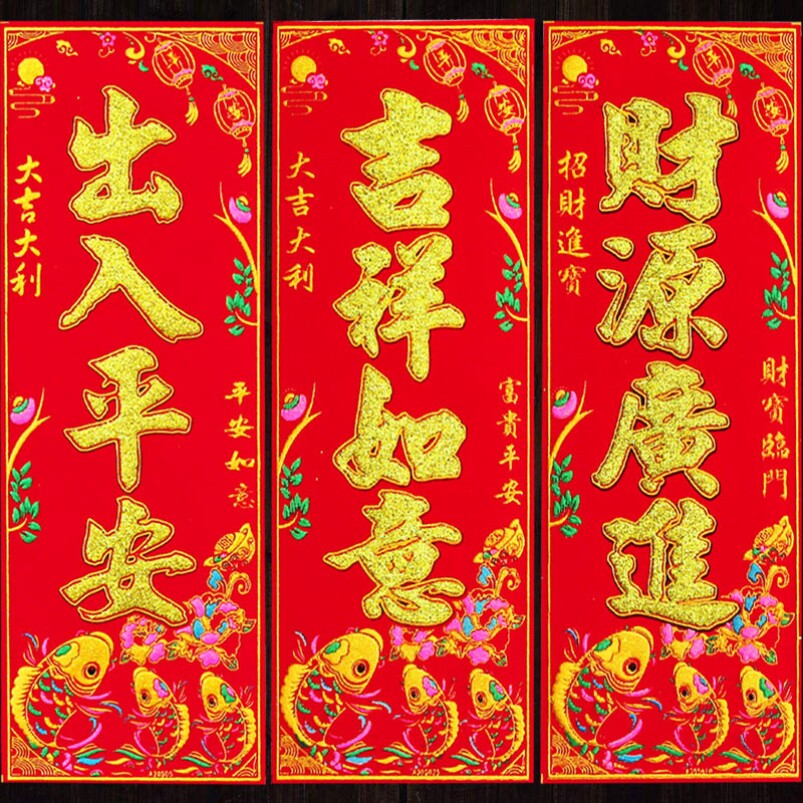 出入平安
大吉大利
平安如意
吉祥如意
大吉大利
富貴平安
財源廣進
招財進寶
財寶臨門
平安
平安
平安